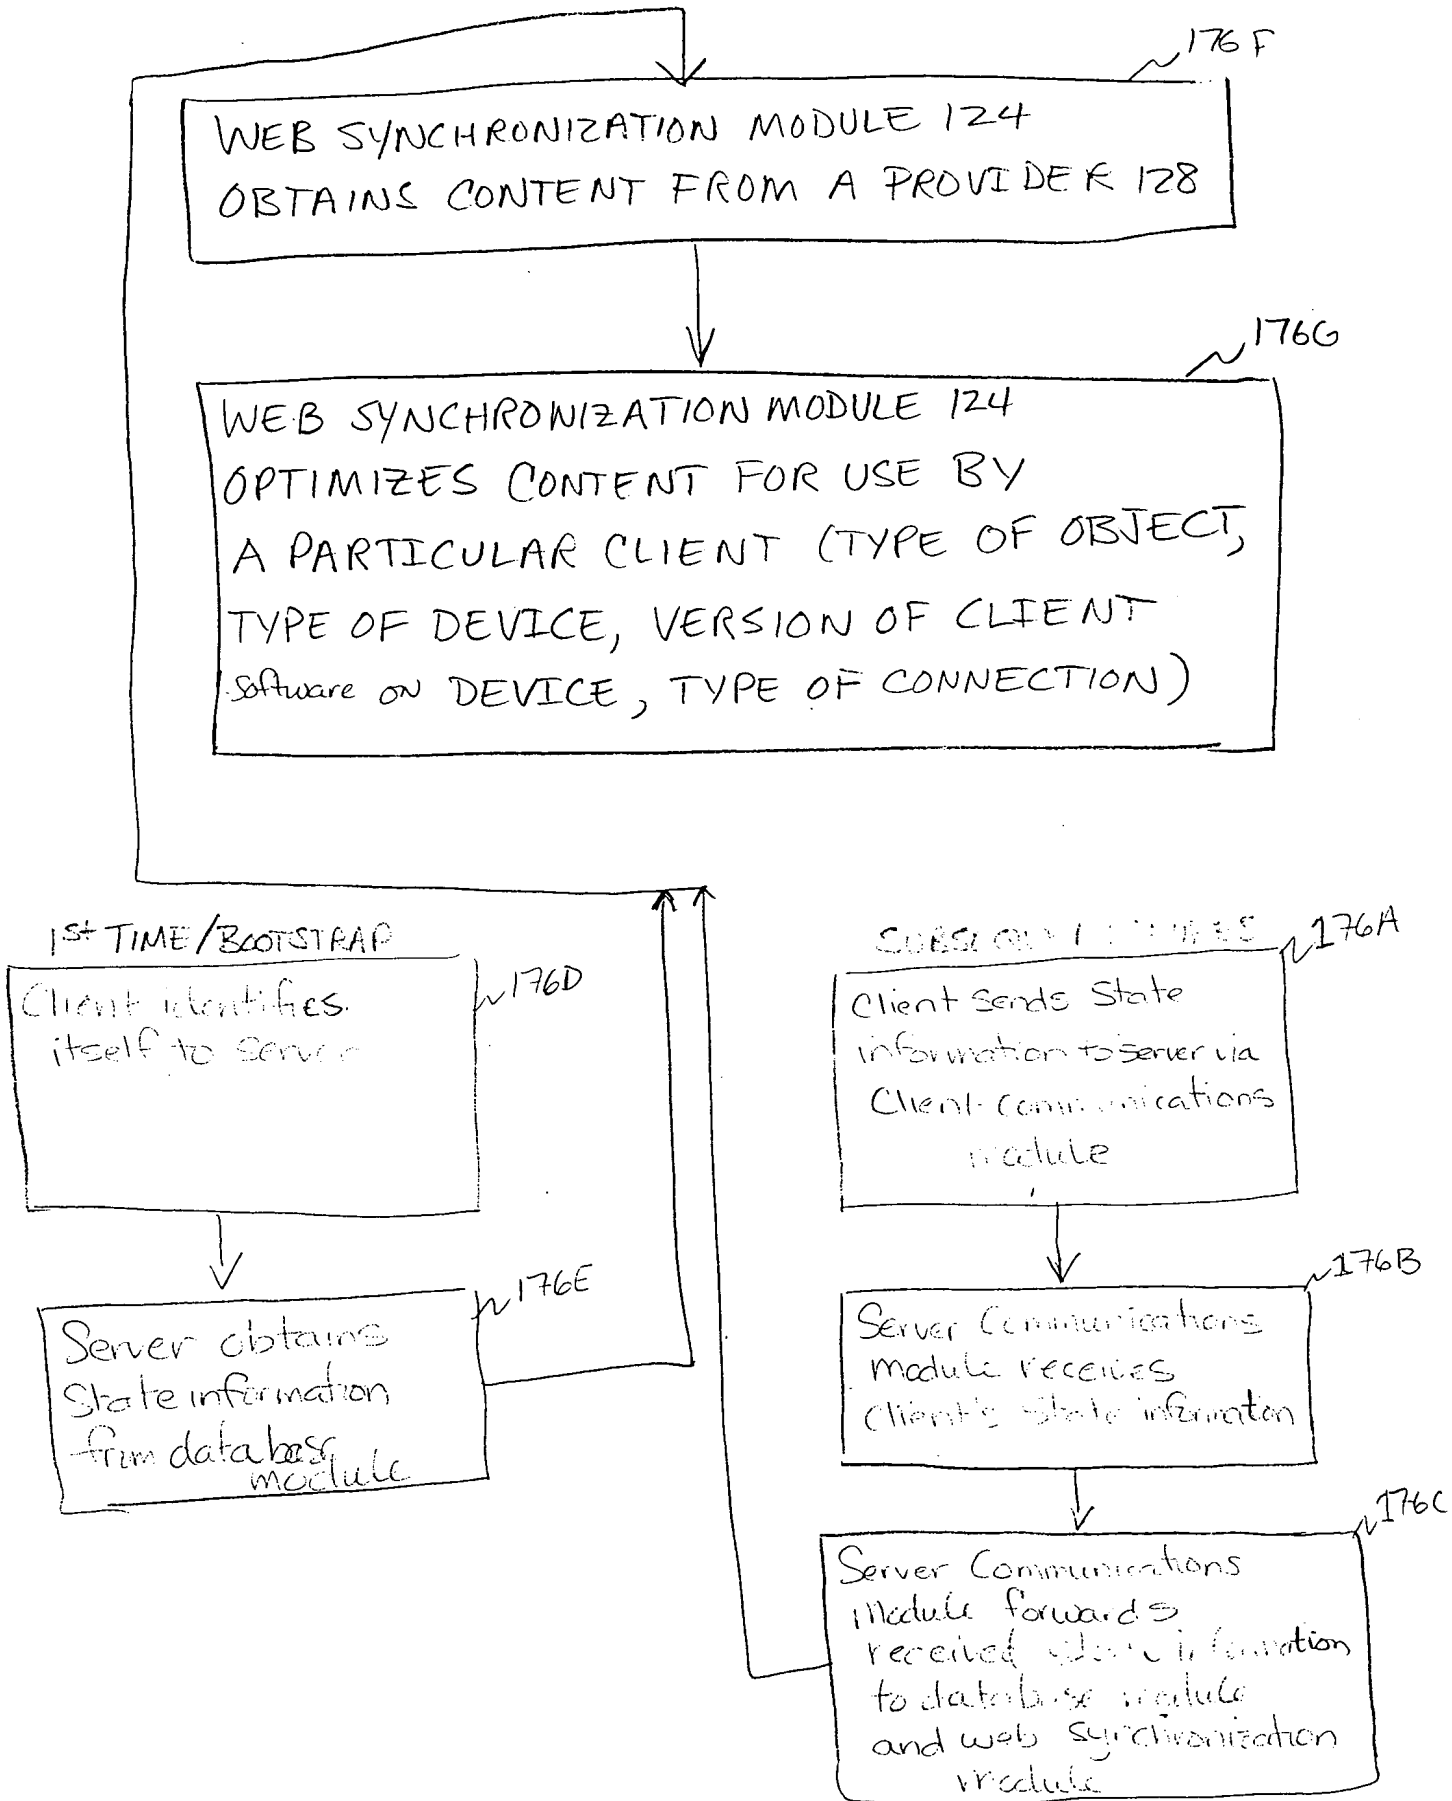 176F
WEB SYNCHRONIZATION MODULE 124
OBTAINS CONTENT FROM A PROVIDER 128
176G
WEB SYNCHRONIZATION MODULE 124
OPTIMIZES CONTENT FOR USE BY
A PARTICULAR CLIENT (TYPE OF OBJECT,
TYPE OF DEVICE, VERSION OF CLIENT
Software ON DEVICE, TYPE OF CONNECTION)
1st TIME/BOOTSTRAP
176D
Client identifies
itself to server
176E
Server obtains
State information
from database
module
176A
Client sends State
information to server via
Client communications
module
176B
Server Communications
module receives
Client's state information
176C
Server Communications
Module forwards
received state information
to database module
and web synchronization
module